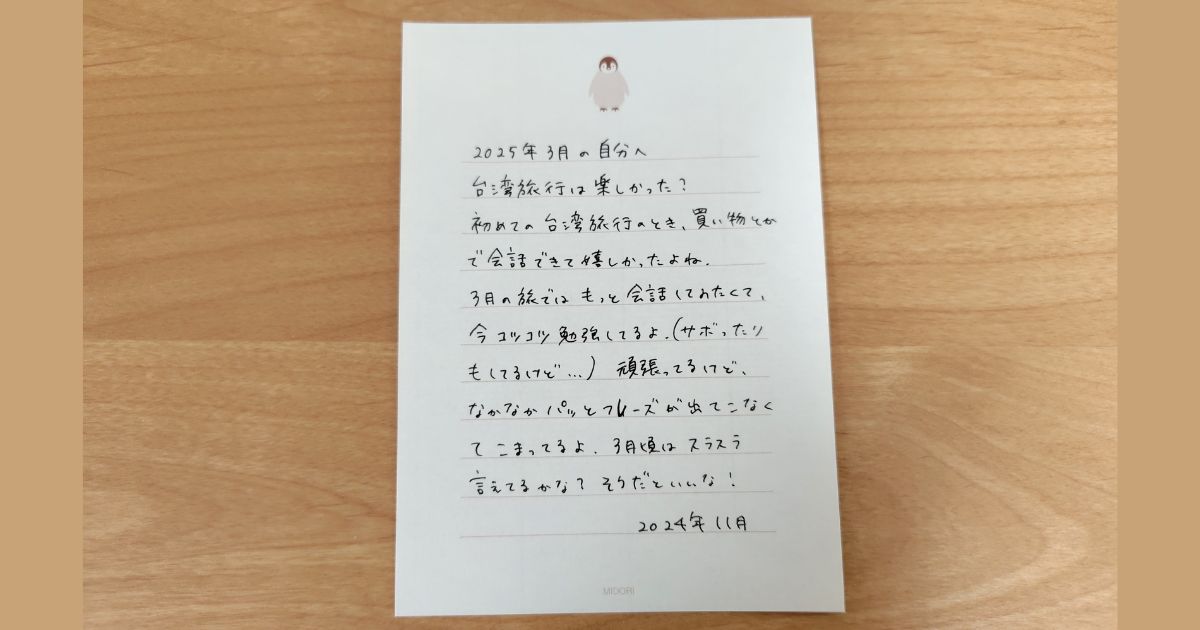 2025年3月の自分へ
台湾旅行は楽しかった?
初めての台湾旅行のとき、買い物とか
で会話できて嬉しかったよね.
3月の旅ではもっと会話してみたくて、
今コツコツ勉強してるよ.(サボったり
もしてるけど…) 頑張ってるけど、
なかなかパッとフレーズが出てこなく
てこまってるよ. 3月頃はスラスラ
言えてるかな? そうだといいな!
2024年11月
MIDORI